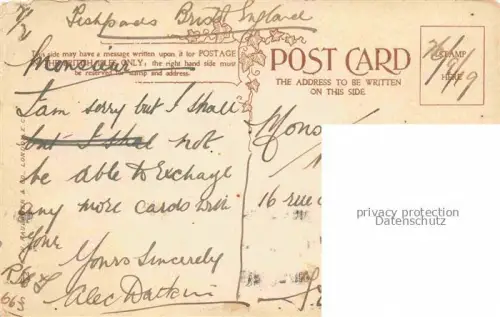 Fishponds Bristol England
This side may have a message written upon it for POSTAGE
ONLY, the right hand side must
be reserved stamp and address.
Monsieur
I am sorry but I shall
but I shal not
be able to Exchange
any more cards with
you
Yours Sincerely
Alec
POST CARD
THE ADDRESS TO BE WRITTEN
ON THIS SIDE.
STAMP
HERE
16 rue
privacy protection
Datenschutz